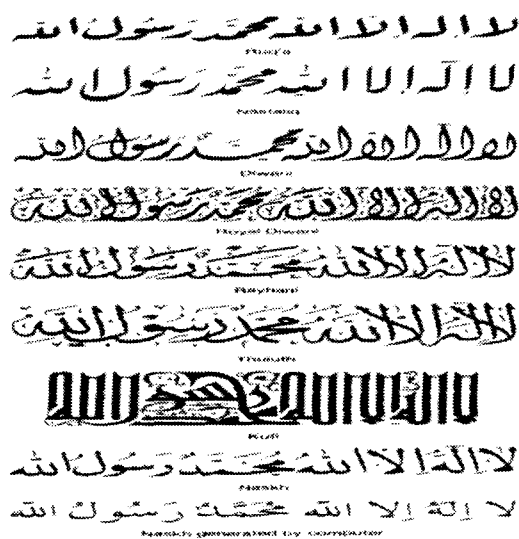 لا اله الا الله محمد رسول الله
Ruq'a
لا اله الا الله محمد رسول الله
Nastaliq
لا اله الا الله محمد رسول الله
Diwani
لا اله الا الله محمد رسول الله
Royal Diwani
لا اله الا الله محمد رسول الله
Rayhani
لا اله الا الله محمد رسول الله
Thuluth
لا اله الا الله محمد رسول الله
Kufi
لا اله الا الله محمد رسول الله
Naskh
لا إلهَ إلا الله محمّد رسول الله
Naskh generated by computer